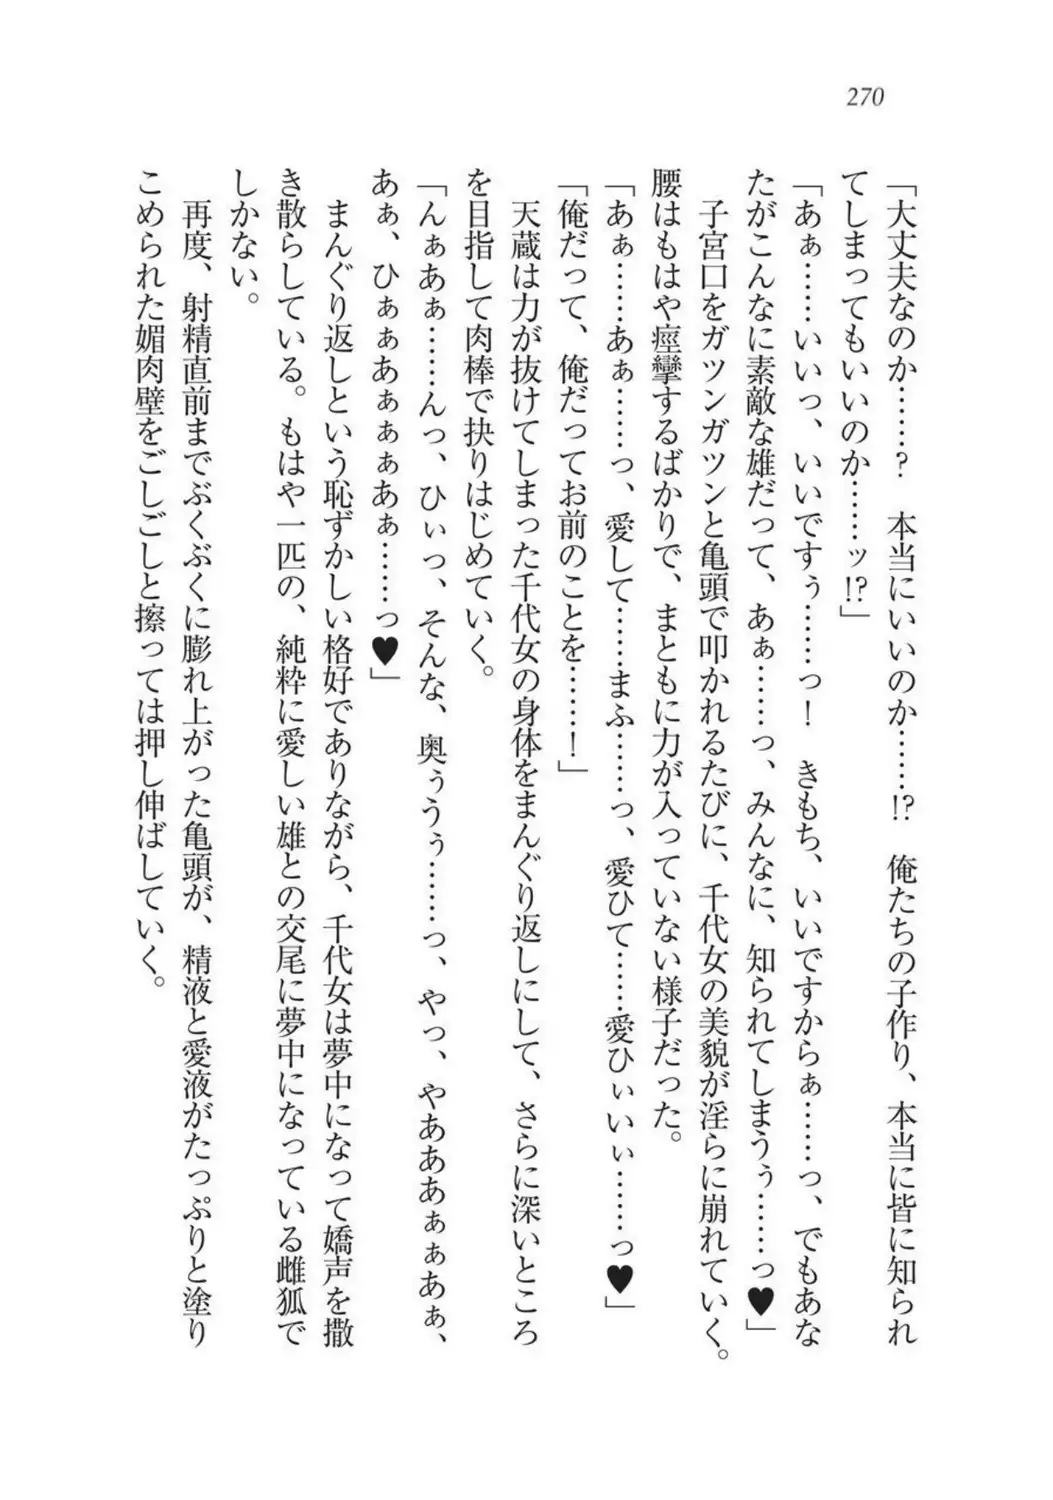 270
「大丈夫なのか……？　本当にいいのか……!?　俺たちの子作り、本当に皆に知られ
てしまってもいいのか……ッ!?」
「あぁ……いいっ、いいですぅ……っ！　きもち、いいですからぁ……っ、でもあな
たがこんなに素敵な雄だって、あぁ……っ、みんなに、知られてしまうぅ……っ♥」
　子宮口をガツンガツンと亀頭で叩かれるたびに、千代女の美貌が淫らに崩れていく。
腰はもはや痙攣するばかりで、まともに力が入っていない様子だった。
「あぁ……あぁ……っ、愛して……まふ……っ、愛ひて……愛ひぃいぃ……っ♥」
「俺だって、俺だってお前のことを……！」
　天蔵は力が抜けてしまった千代女の身体をまんぐり返しにして、さらに深いところ
を目指して肉棒で抉りはじめていく。
「んぁあぁ……んっ、ひぃっ、そんな、奥ぅうぅ……っ、やっ、やああぁぁあぁ、
あぁ、ひぁぁあぁぁぁあぁ……っ♥」
　まんぐり返しという恥ずかしい格好でありながら、千代女は夢中になって嬌声を撒
き散らしている。もはや一匹の、純粋に愛しい雄との交尾に夢中になっている雌狐で
しかない。
　再度、射精直前までぶくぶくに膨れ上がった亀頭が、精液と愛液がたっぷりと塗り
こめられた媚肉壁をごしごしと擦っては押し伸ばしていく。